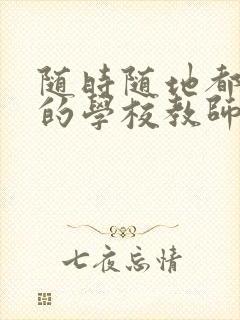 随時随地都
的學校教師
七夜忘情